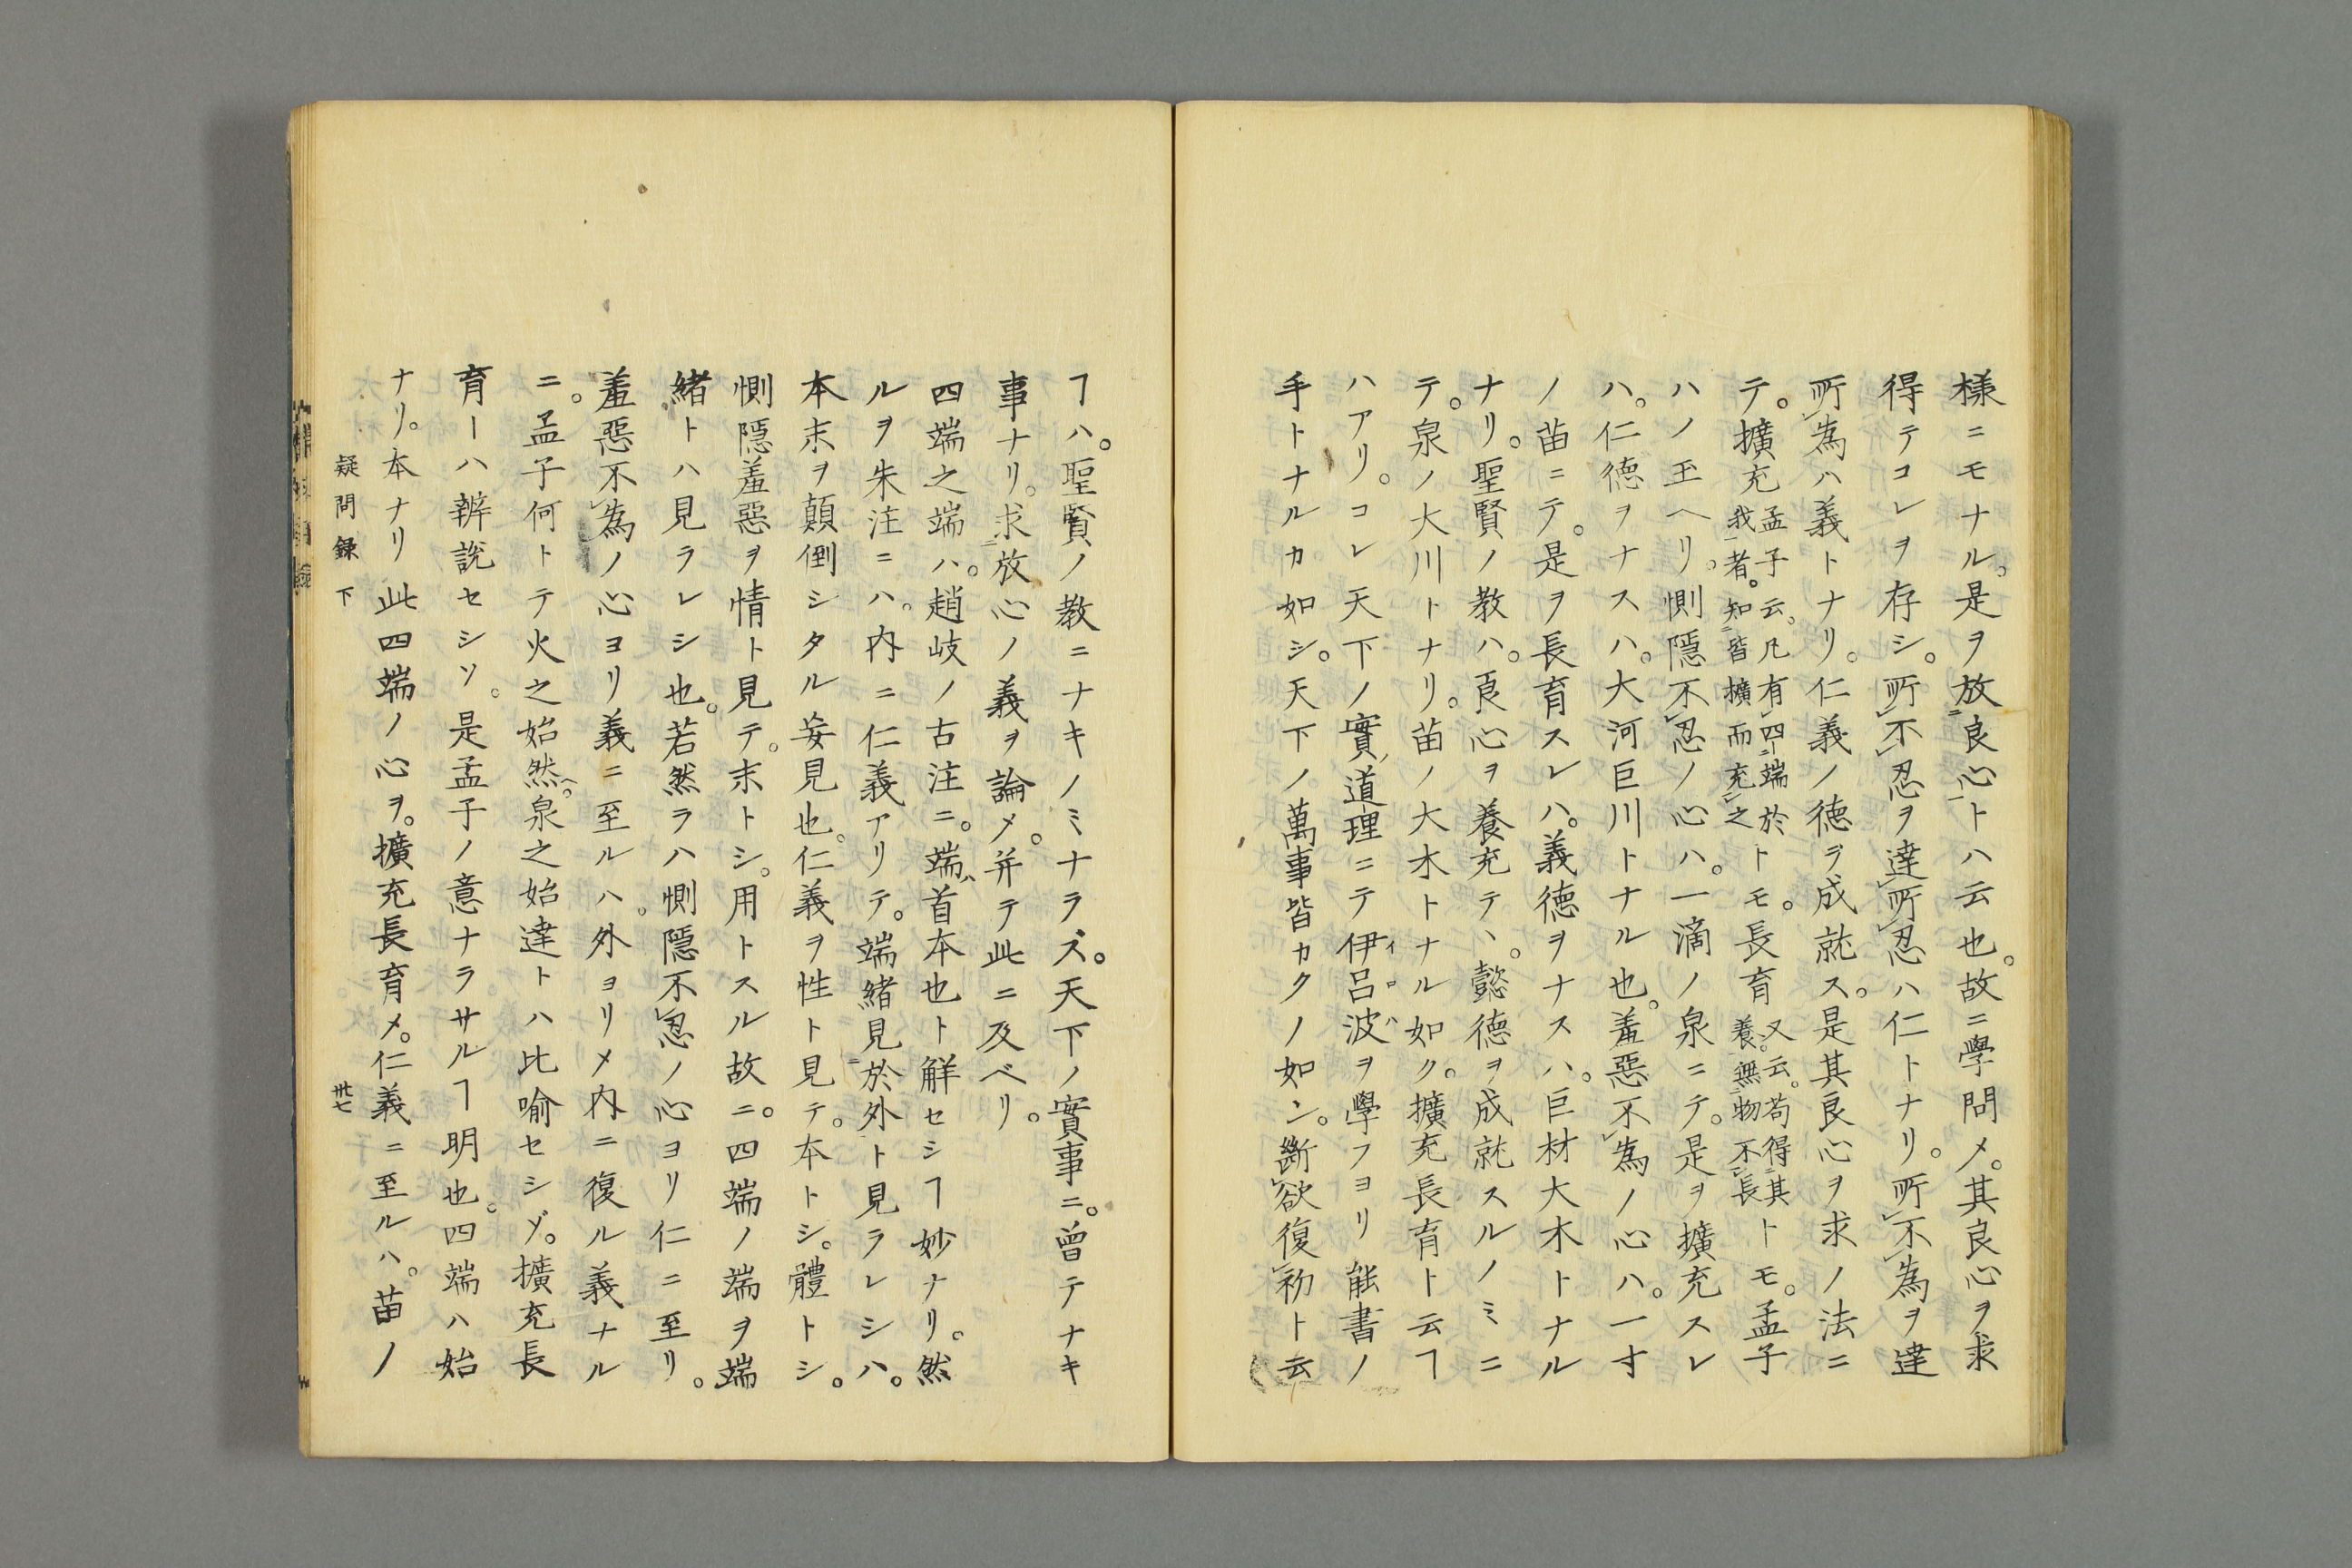 様ニモナル。是ヲ放良心トハ云也。故ニ學問メ。其良心ヲ求
得テコレヲ存シ。所不忍ヲ達所忍ハ仁トナリ。所不為ヲ達
所為ハ義トナリ。仁義ノ德ヲ成就ス。是其良心ヲ求ノ法ニ
テ。擴充孟子云。凡有四端於我者。知皆擴而充之トモ。長育又云。苟得其養。無物不長トモ。孟子
ハノ玉ヘリ。惻隱不忍ノ心ハ。一滴ノ泉ニテ。是ヲ擴充スレ
ハ。仁德ヲナスハ。大河巨川トナル也。羞惡不為ノ心ハ。一寸
ノ苗ニテ。是ヲ長育スレハ。義德ヲナスハ。巨材大木トナル
ナリ。聖賢ノ教ハ。良心ヲ養充テ、。懿德ヲ成就スルノミニ
テ。泉ノ大川トナリ。苗ノ大木トナル如ク。擴充長育ト云ヿ
ハアリ。コレ天下ノ實ノ道理ニテ伊呂波イロハヲ學フヨリ能書ノ
手トナルカ如シ。天下ノ萬事皆カクノ如ン。斷欲復初ト云
ヿハ。聖賢ノ教ニナキノミナラズ。天下ノ實事ニ。曾テナキ
事ナリ。求放心ノ義ヲ論メ。并テ此ニ及ベリ。
四端之端ハ。趙岐ノ古注ニ。端ハ首本也ト解セシヿ妙ナリ。然
ルヲ朱注ニハ。内ニ仁義アリテ。端緒見於外ト見ラレシハ。
本末ヲ顛倒シタル妄見也。仁義ヲ性ト見テ。本トシ。體トシ。
惻隱羞惡ヲ情ト見テ。末トシ。用トスル故ニ。四端ノ端ヲ端
緒トハ見ラレシ也。若然ラハ惻隱不忍ノ心ヨリ仁ニ至リ。
羞惡不為ノ心ヨリ義ニ至ルハ。外ヨリメ内ニ復ル義ナル
ニ。孟子何トテ火之始然。泉之始達トハ比喻セシゾ。擴充長
育ーハ辨説セシソ。是孟子ノ意ナラサルヿ明也。四端ハ始
ナリ。本ナリ此四端ノ心ヲ。擴充長育メ。仁義ニ至ルハ。苗ノ
疑問錄 下 卅七